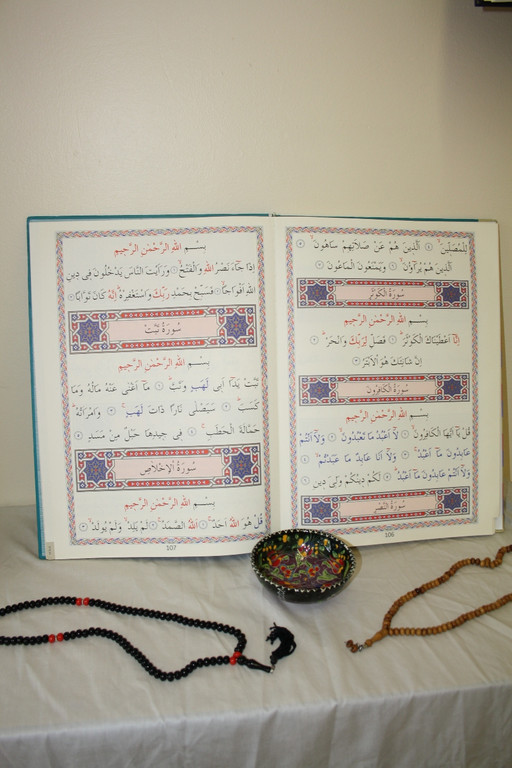 لِلْمُصَلِّينَۙ ﴿٤﴾ اَلَّذِينَ هُمْ عَنْ صَلَاتِهِمْ سَاهُونَۙ ﴿٥﴾
اَلَّذِينَ هُمْ يُرَٓاؤُنَۙ ﴿٦﴾ وَيَمْنَعُونَ الْمَاعُونَ ﴿٧﴾
سُورَةُ الْكَوْثَرِ
بِسْمِ اللهِ الرَّحْمٰنِ الرَّحِيمِ
اِنَّٓا اَعْطَيْنَاكَ الْكَوْثَرَۜ ﴿١﴾ فَصَلِّ لِرَبِّكَ وَانْحَرْۜ ﴿٢﴾
اِنَّ شَانِئَكَ هُوَ الْاَبْتَرُ ﴿٣﴾
سُورَةُ الْكَافِرُونَ
بِسْمِ اللهِ الرَّحْمٰنِ الرَّحِيمِ
قُلْ يَٓا اَيُّهَا الْكَافِرُونَۙ ﴿١﴾ لَٓا اَعْبُدُ مَا تَعْبُدُونَۙ ﴿٢﴾ وَلَٓا اَنْتُمْ
عَابِدُونَ مَٓا اَعْبُدُۚ ﴿٣﴾ وَلَٓا اَنَا عَابِدٌ مَا عَبَدْتُمْۙ ﴿٤﴾
وَلَٓا اَنْتُمْ عَابِدُونَ مَٓا اَعْبُدُۜ ﴿٥﴾ لَكُمْ دِينُكُمْ وَلِيَ دِينِ ﴿٦﴾
سُورَةُ النَّصْرِ
106
بِسْمِ اللهِ الرَّحْمٰنِ الرَّحِيمِ
اِذَا جَٓاءَ نَصْرُ اللهِ وَالْفَتْحُۙ ﴿١﴾ وَرَاَيْتَ النَّاسَ يَدْخُلُونَ فِي دِينِ
اللهِ اَفْوَاجًاۙ ﴿٢﴾ فَسَبِّحْ بِحَمْدِ رَبِّكَ وَاسْتَغْفِرْهُۜ اِنَّهُ كَانَ تَوَّابًا ﴿٣﴾
سُورَةُ تَبَّتْ
بِسْمِ اللهِ الرَّحْمٰنِ الرَّحِيمِ
تَبَّتْ يَدَٓا اَبِي لَهَبٍ وَتَبَّۜ ﴿١﴾ مَٓا اَغْنٰى عَنْهُ مَالُهُ وَمَا
كَسَبَۜ ﴿٢﴾ سَيَصْلٰى نَارًا ذَاتَ لَهَبٍۚ ﴿٣﴾ وَامْرَاَتُهُۜ
حَمَّالَةَ الْحَطَبِۚ ﴿٤﴾ فِي جِيدِهَا حَبْلٌ مِنْ مَسَدٍ ﴿٥﴾
سُورَةُ الْاِخْلَاصِ
بِسْمِ اللهِ الرَّحْمٰنِ الرَّحِيمِ
قُلْ هُوَ اللهُ اَحَدٌۚ ﴿١﴾ اَللهُ الصَّمَدُۚ ﴿٢﴾ لَمْ يَلِدْ وَلَمْ يُولَدْۙ ﴿٣﴾
107